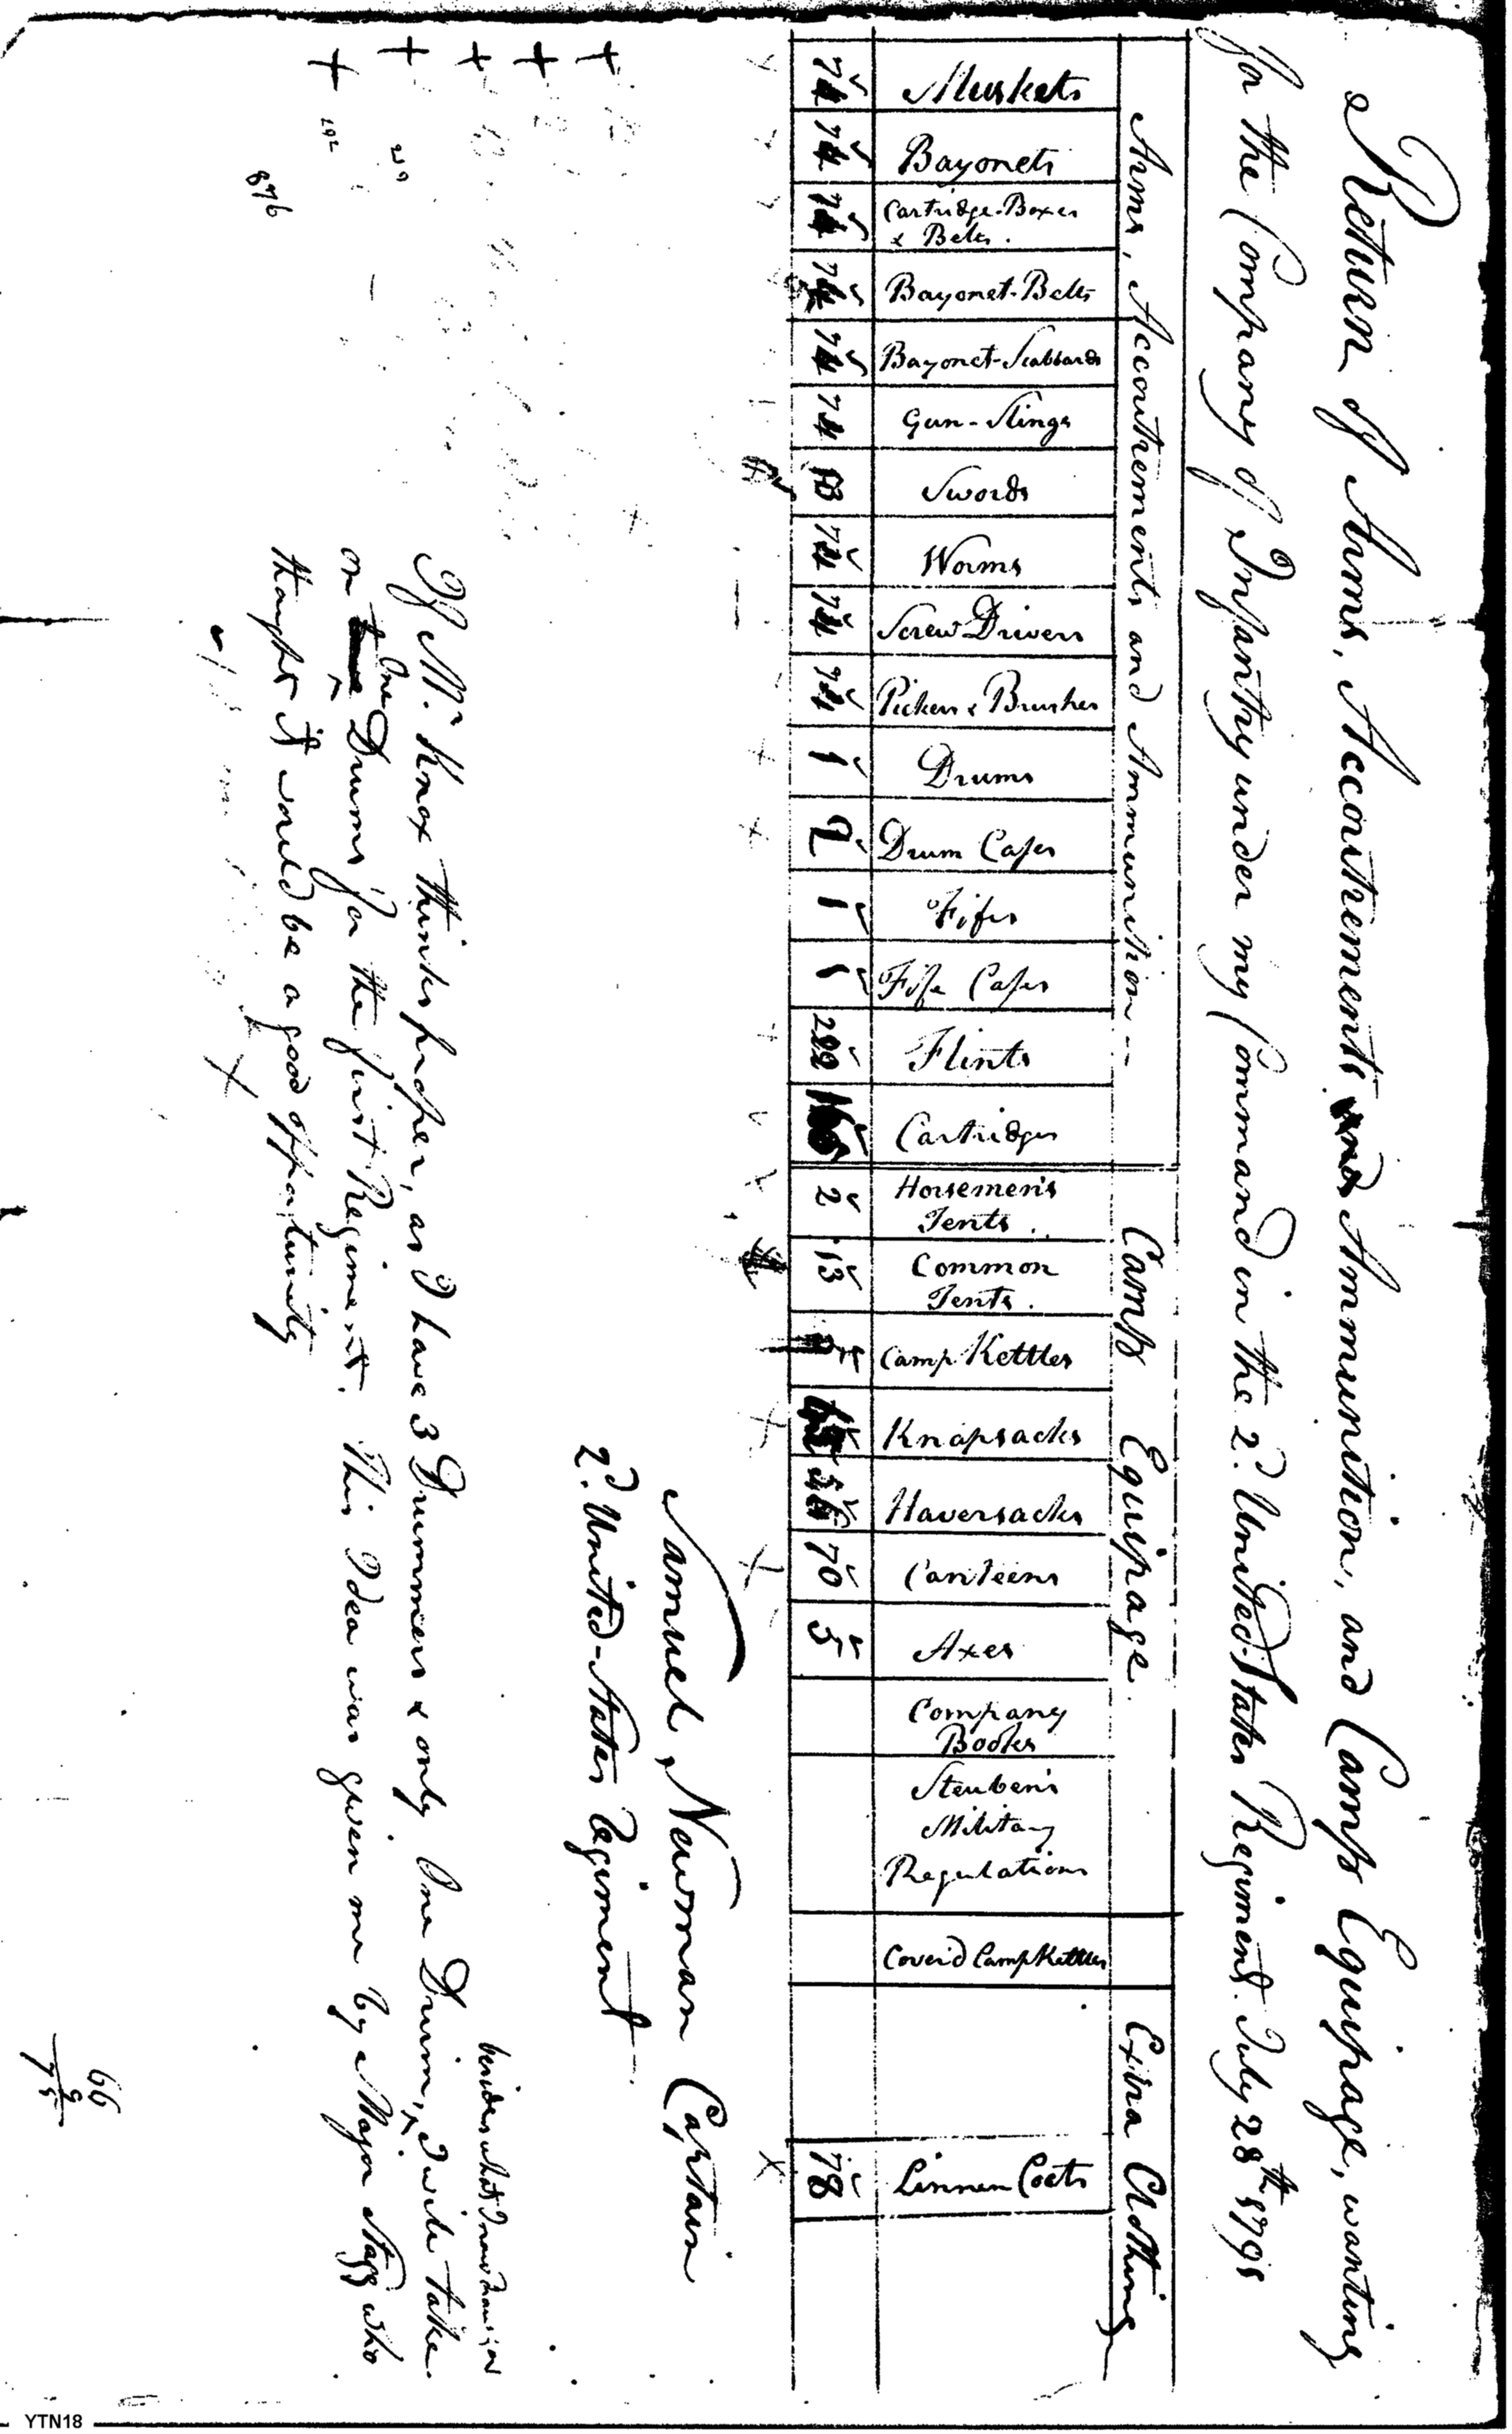 Return of Arms, Accoutrements and Ammunition, and Camp Equipage, wanting
for the Company of Infantry under my Command in the 2d. United States Regiment. July 28th 1791
Arms, Accoutrements and Ammunition
Camp Equipage.
Extra Clothing
Muskets
Bayonets
Cartridge-Boxes
& Belts.
Bayonet-Belts
Bayonet-Scabbards
Gun-Slings
Swords
Worms
Screw Drivers
Pickers & Brushes
Drums
Drum Cases
Fifes
Fife Cases
Flints
Cartridges
Horsemen's
Tents.
Common
Tents.
Camp Kettles
Knapsacks
Haversacks
Canteens
Axes
Company
Books
Steuben's
Military
Regulations
Cover'd Camp Kettles
Linnen Coats
74
74
74
74
74
74
74
74
74
1
2
1
1
2
13
70
5
78
Samuel Newman Captain
2d. United-States Regiment
besides what I now draw for
If Mr. Knox thinks proper, as I have 3 Drummers & only One Drum, I will take
One
on Drums for the first Regiment. This Idea was given me by Major Stagg who
thought it would be a good opportunity
292
876
66
9
75
YTN18